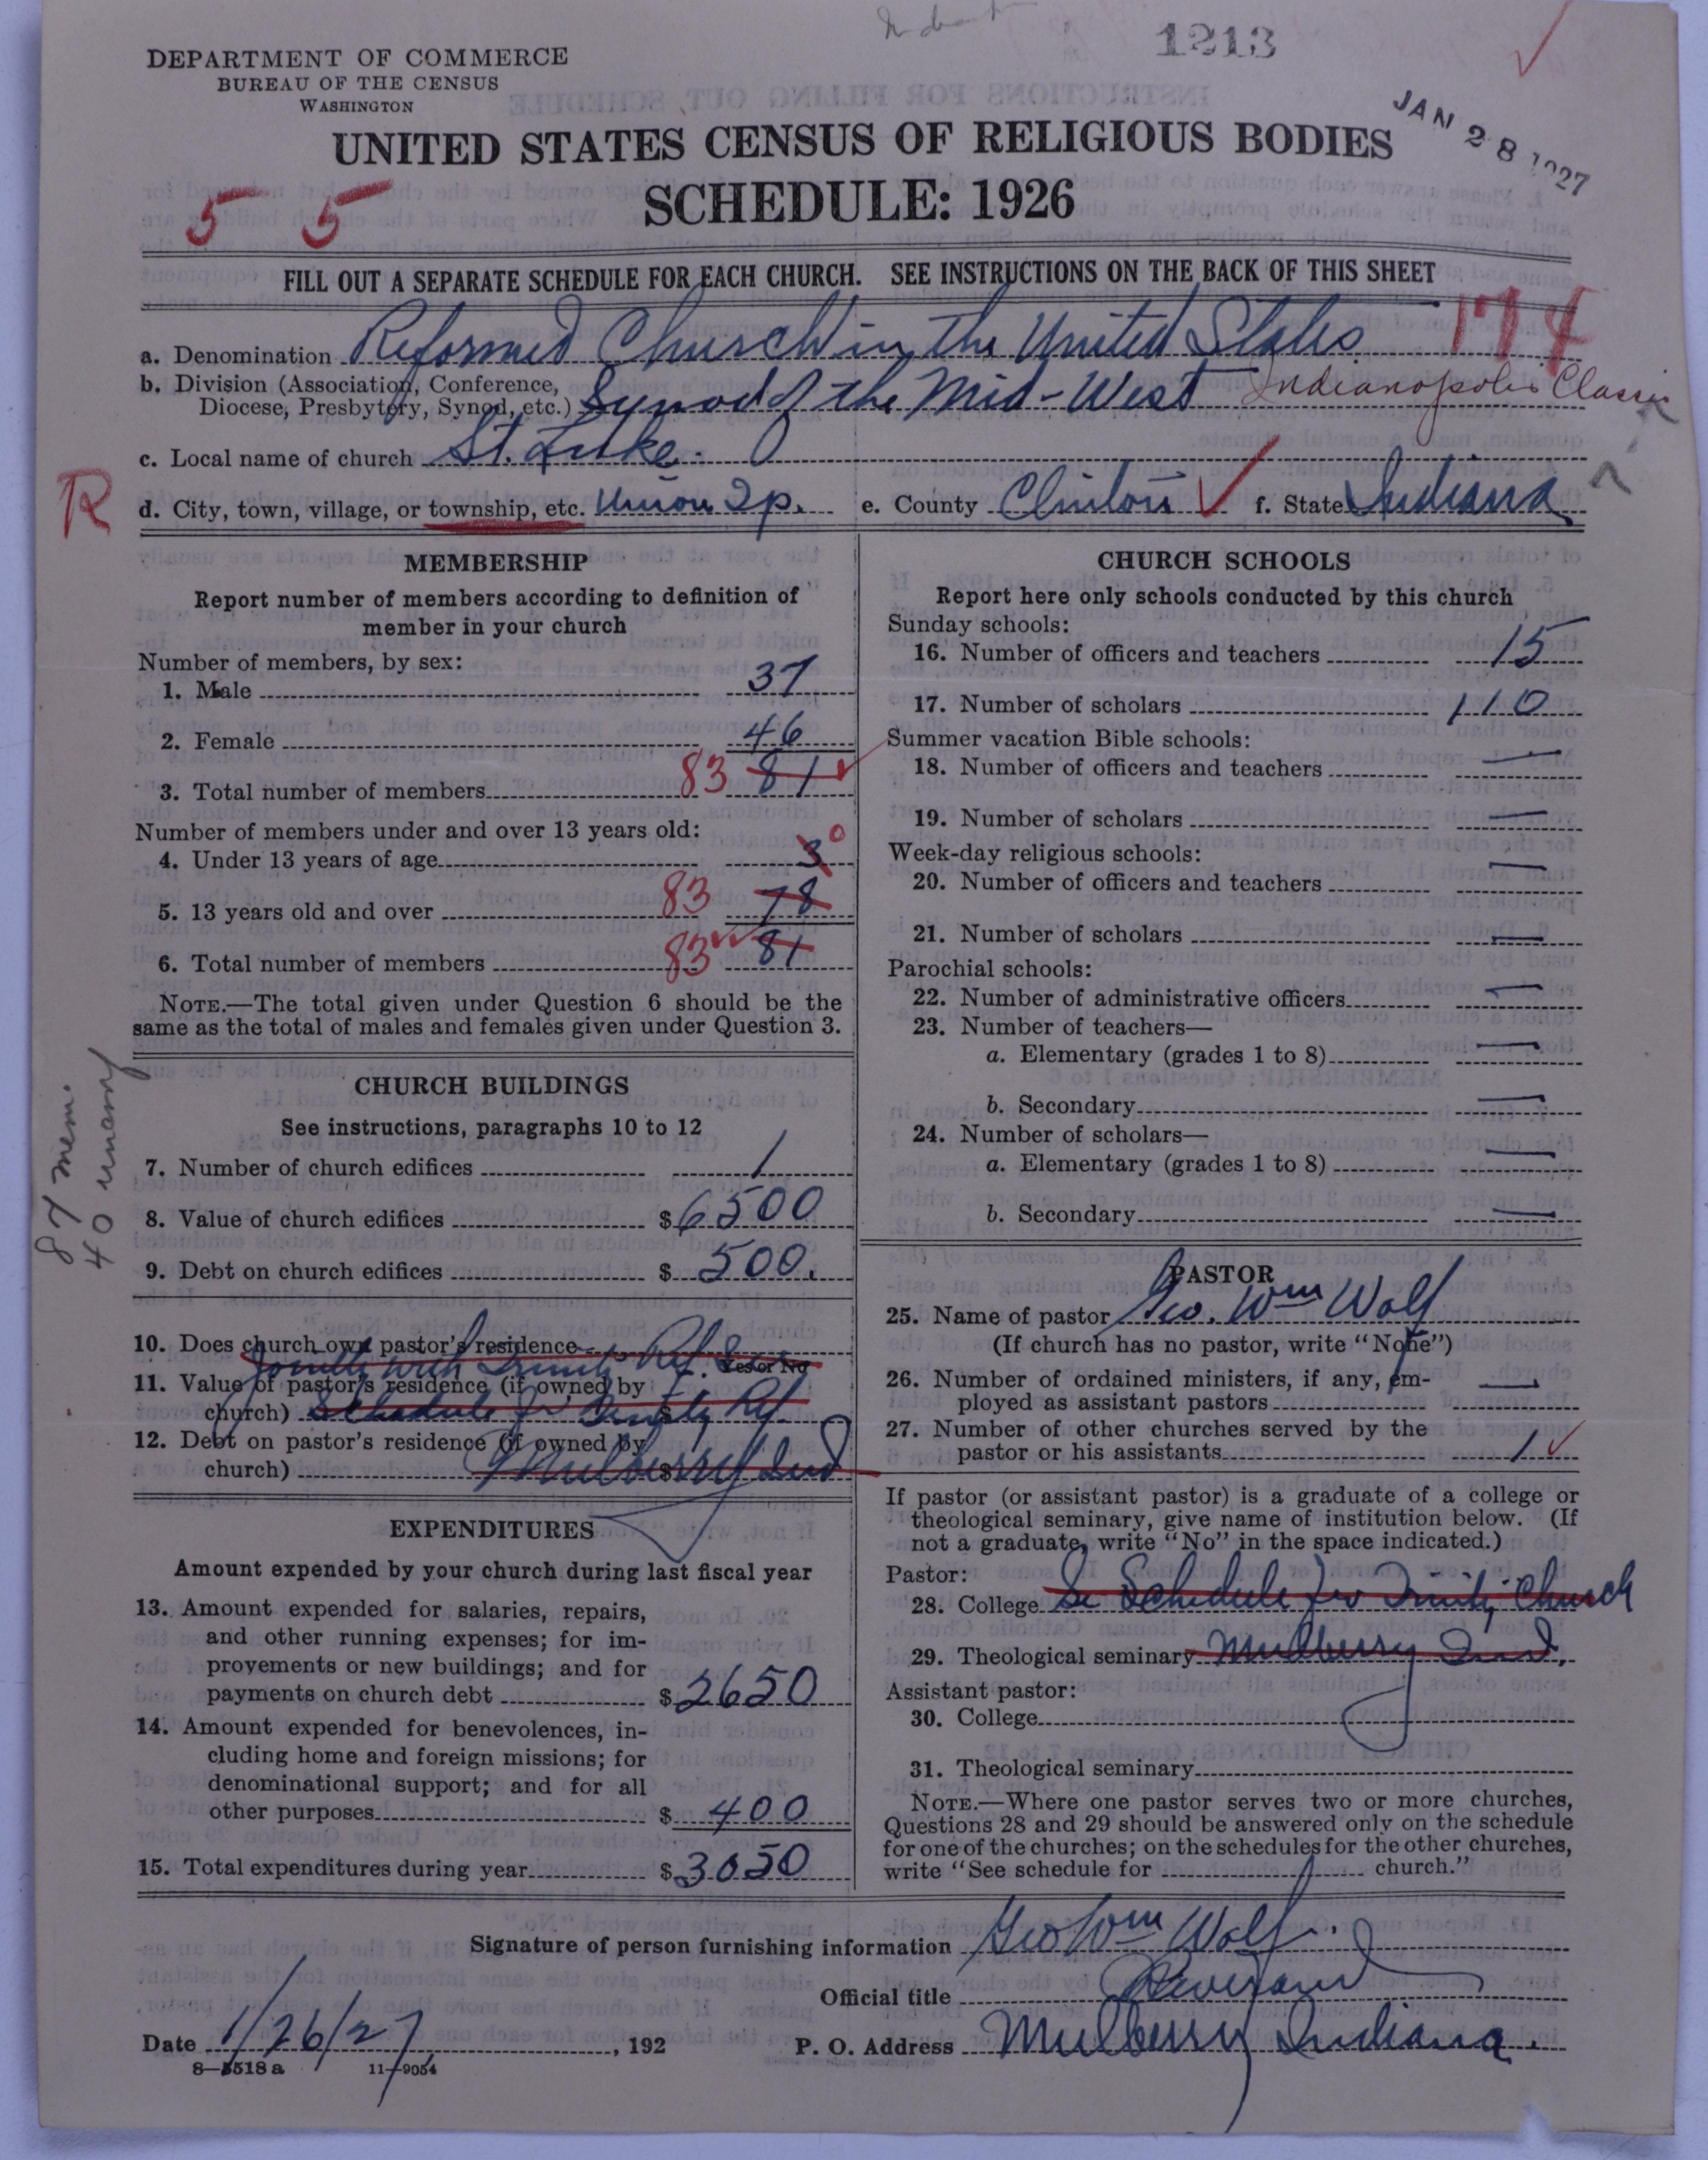 1213
DEPARTMENT OF COMMERCE
BUREAU OF THE CENSUS
WASHINGTON
JAN 28 1927
UNITED STATES CENSUS OF RELIGIOUS BODIES
SCHEDULE: 1926
5 5
FILL OUT A SEPARATE SCHEDULE FOR EACH CHURCH. SEE INSTRUCTIONS ON THE BACK OF THIS SHEET
174
a. Denomination Reformed Church in the United States
b. Division (Association, Conference,
Diocese, Presbytery, Synod, etc.) Synod of the Mid-West Indianapolis Classis
c. Local name of church St. Luke.
R
d. City, town, village, or township, etc. Union Tp. e. County Clinton f. State Indiana
MEMBERSHIP
Report number of members according to definition of
member in your church
Number of members, by sex:
1. Male 37
2. Female 46
3. Total number of members 83 81
Number of members under and over 13 years old:
4. Under 13 years of age 3 0
5. 13 years old and over 83 78
6. Total number of members 83 81
NOTE.—The total given under Question 6 should be the
same as the total of males and females given under Question 3.
87 mem.
40
CHURCH BUILDINGS
See instructions, paragraphs 10 to 12
7. Number of church edifices 1
8. Value of church edifices $6500
9. Debt on church edifices $ 500.
10. Does church own pastor's residence
Jointly with Trinity Ref. See Yes or No
11. Value of pastor's residence (if owned by
church) Schedule for Trinity Ref $
12. Debt on pastor's residence (if owned by
church) Mulberry Ind $
EXPENDITURES
Amount expended by your church during last fiscal year
13. Amount expended for salaries, repairs,
and other running expenses; for im-
provements or new buildings; and for
payments on church debt $2650
14. Amount expended for benevolences, in-
cluding home and foreign missions; for
denominational support; and for all
other purposes $ 400
15. Total expenditures during year $3050
CHURCH SCHOOLS
Report here only schools conducted by this church
Sunday schools:
16. Number of officers and teachers 15
17. Number of scholars 110
Summer vacation Bible schools:
18. Number of officers and teachers —
19. Number of scholars —
Week-day religious schools:
20. Number of officers and teachers —
21. Number of scholars —
Parochial schools:
22. Number of administrative officers —
23. Number of teachers—
a. Elementary (grades 1 to 8) —
b. Secondary —
24. Number of scholars—
a. Elementary (grades 1 to 8) —
b. Secondary —
PASTOR
25. Name of pastor Geo. Wm Wolf
(If church has no pastor, write "None")
26. Number of ordained ministers, if any, em-
ployed as assistant pastors —
27. Number of other churches served by the
pastor or his assistants 1
If pastor (or assistant pastor) is a graduate of a college or
theological seminary, give name of institution below. (If
not a graduate, write "No" in the space indicated.)
Pastor:
28. College Se Schedule for Trinity Church
29. Theological seminary Mulberry Ind.
Assistant pastor:
30. College
31. Theological seminary
NOTE.—Where one pastor serves two or more churches,
Questions 28 and 29 should be answered only on the schedule
for one of the churches; on the schedules for the other churches,
write "See schedule for church."
Signature of person furnishing information Geo Wm Wolf.
Official title Reverand
Date 1/26/27, 192 P. O. Address Mulberry Indiana.
8—5518 a 11—9054